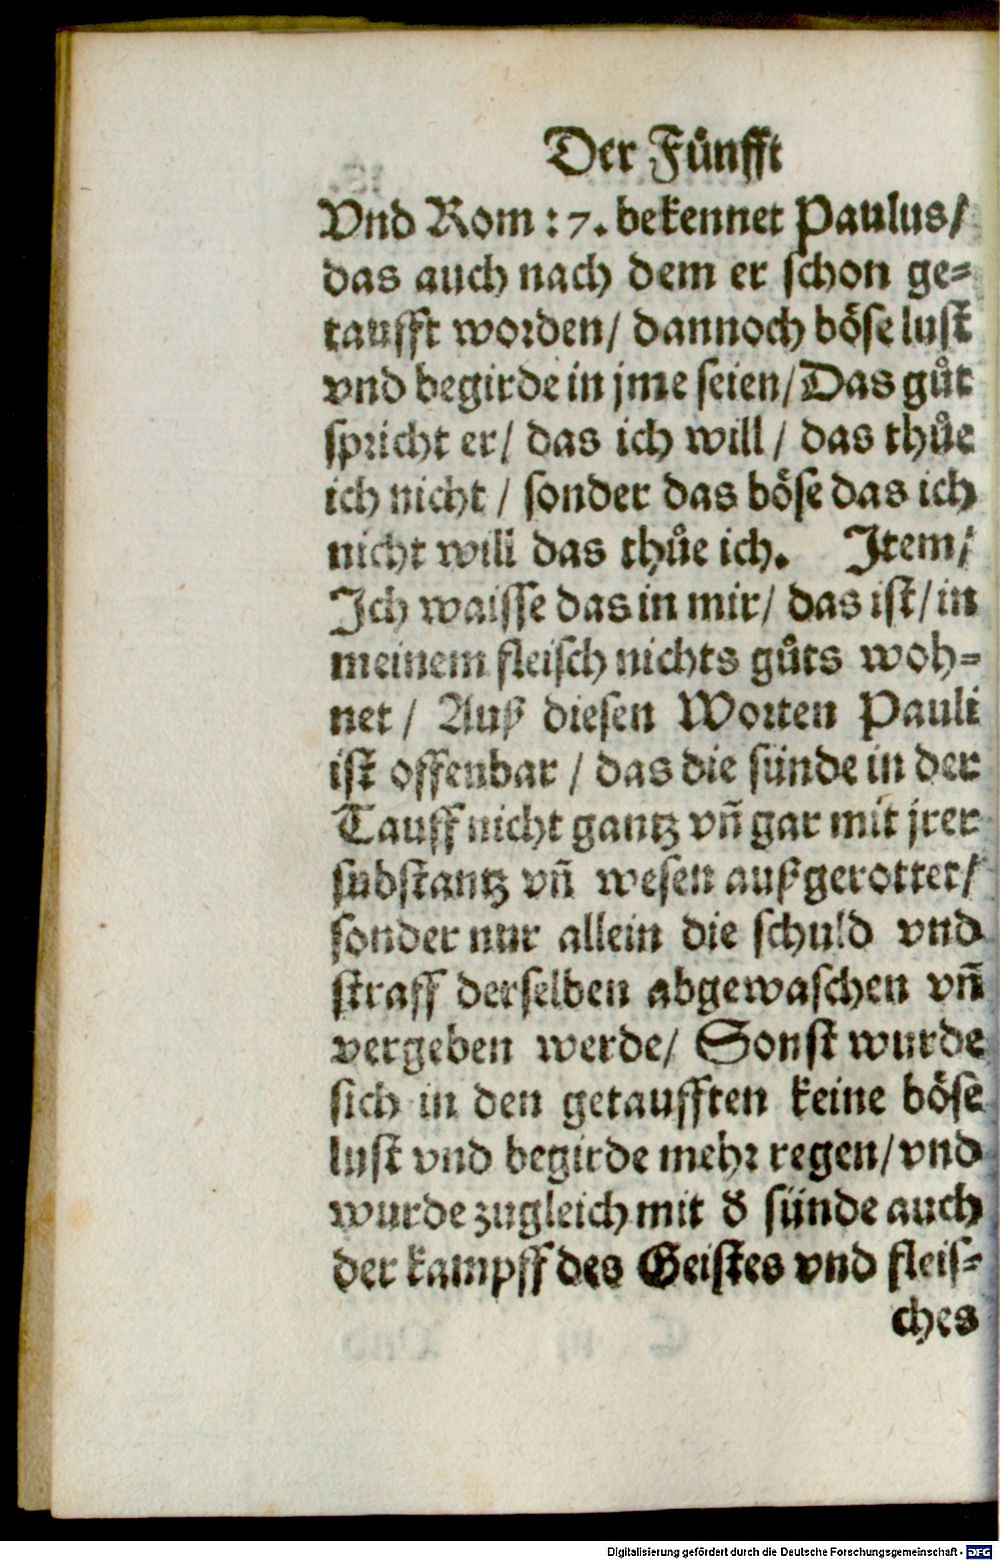 Der Fůnfft
Vnd Rom : 7. bekennet Paulus/
das auch nach dem er schon ge-
taufft worden/ dannoch böse lust
vnd begirde in jme seien/ Das gůt
spricht er/ das ich will / das thůe
ich nicht / sonder das böse das ich
nicht will das thůe ich. Item/
Ich waisse das in mir/ das ist/ in
meinem fleisch nichts gůts woh-
net / Auß diesen Worten Pauli
ist offenbar / das die sünde in der
Tauff nicht gantz vn̄ gar mit jrer
substantz vn̄ wesen außgerottet/
sonder nur allein die schuld vnd
straff derselben abgewaschen vn̄
vergeben werde/ Sonst wurde
sich in den getaufften keine böse
lust vnd begirde mehr regen/ vnd
wurde zugleich mit d̕ sünde auch
der kampff des Geistes vnd fleis-
ches
Digitalisierung gefördert durch die Deutsche Forschungsgemeinschaft - DFG